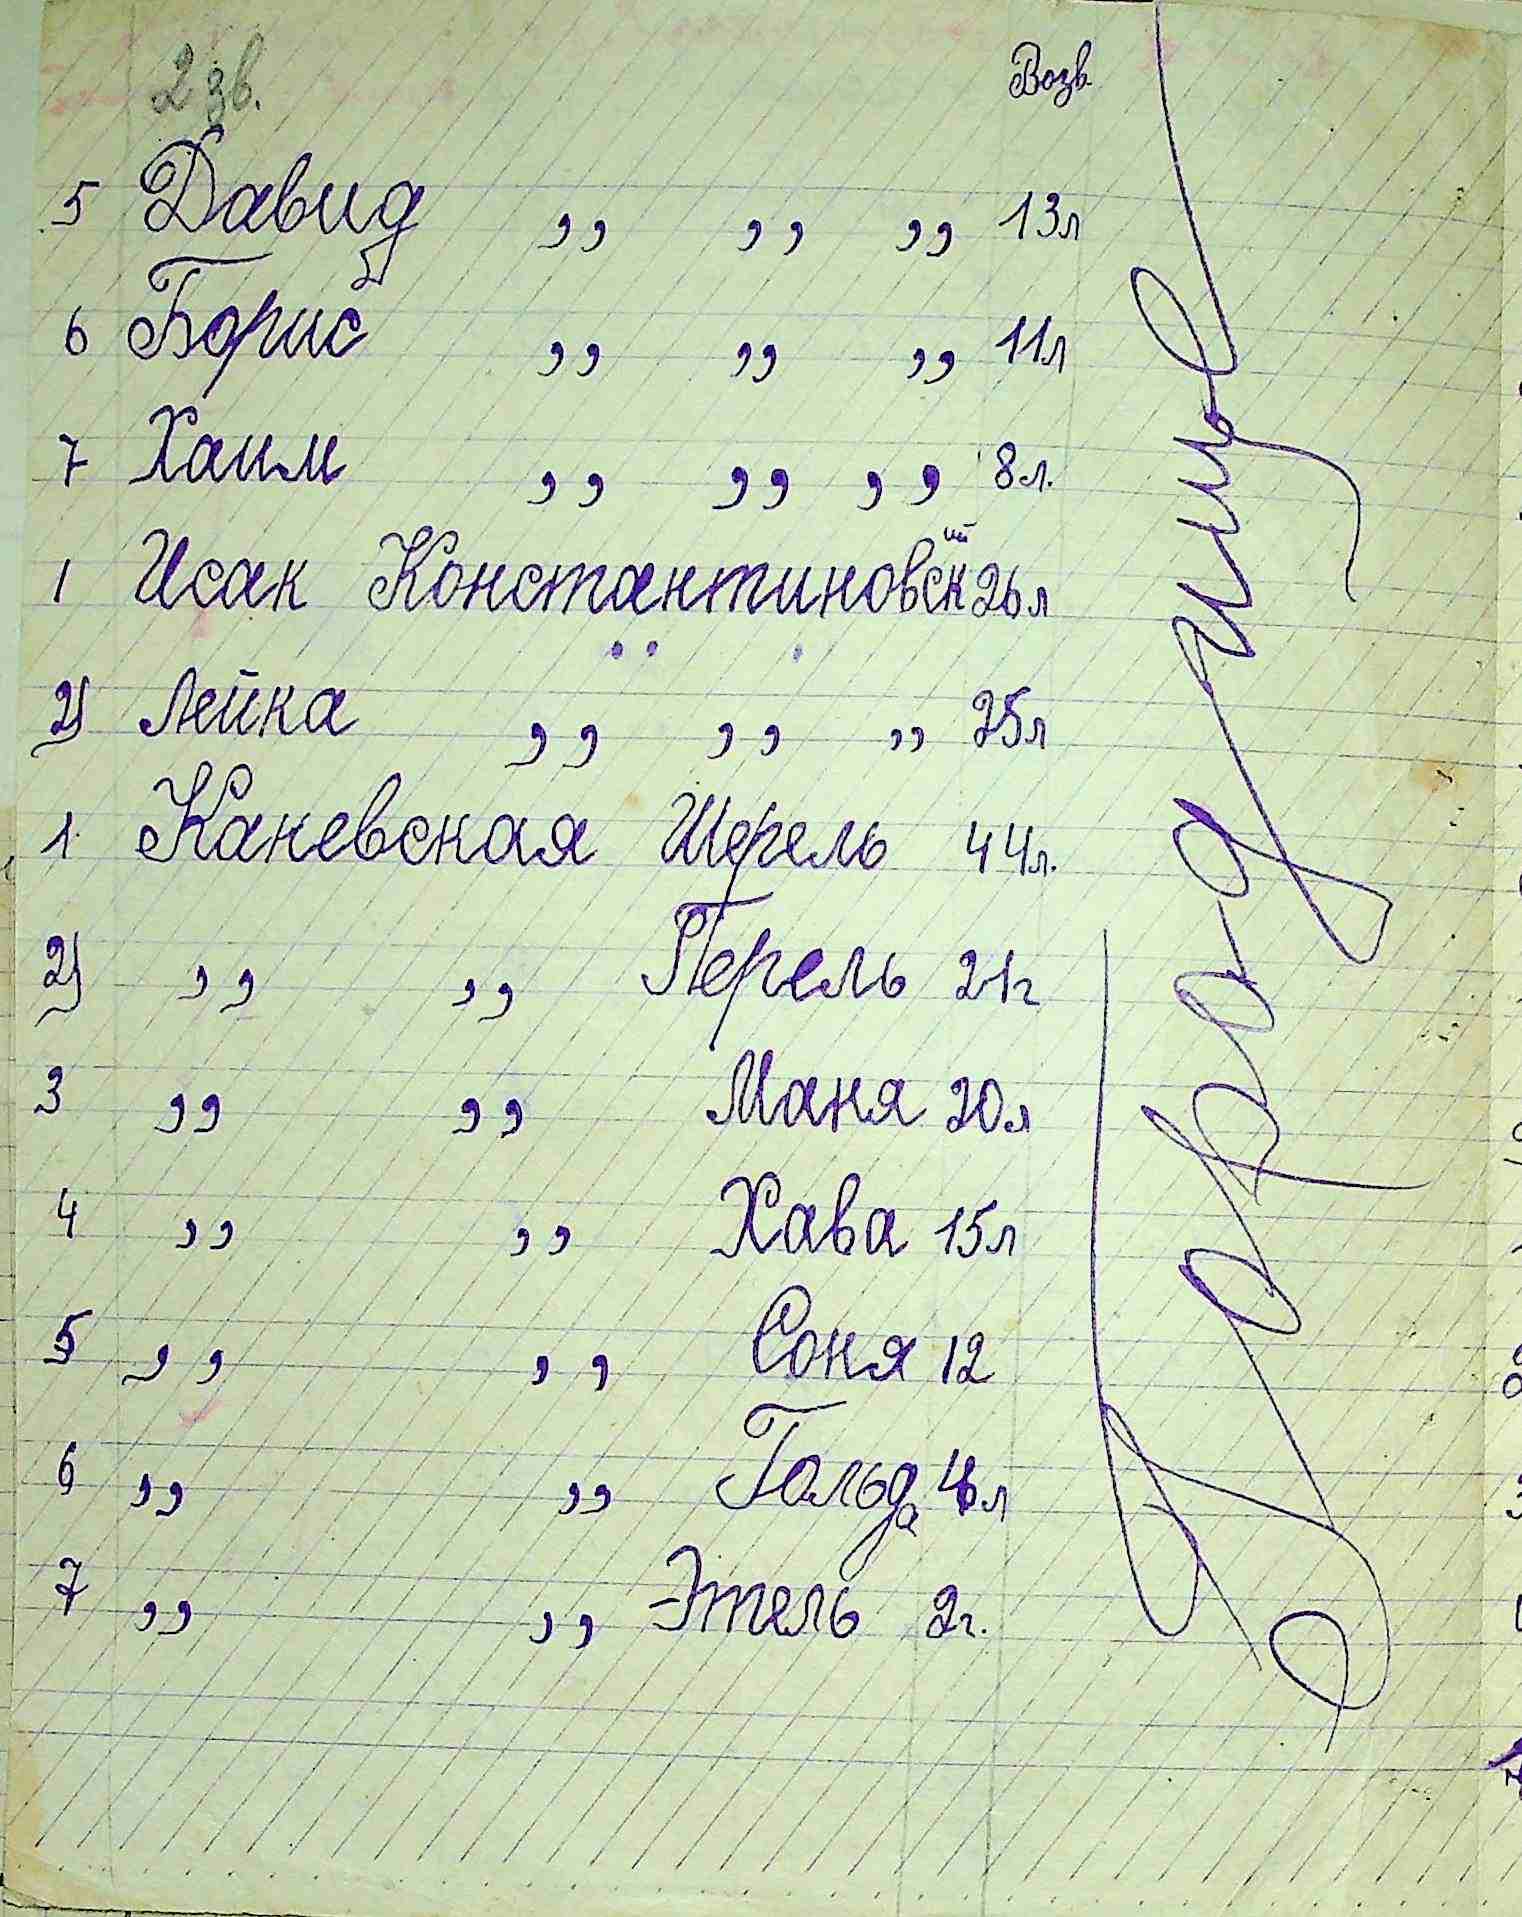 2 зв. Возв.
5 Давид ,, ,, ,, 13л
6 Борис ,, ,, ,, 11л
7 Хаим ,, ,, ,, 8л.
1 Исак Константиновский 26л
2) Лейка ,, ,, ,, 25л
1. Каневская Шерель 44л.
2) ,, ,, Перель 21г
3 ,, ,, Маня 20л
4 ,, ,, Хава 15л
5 ,, ,, Соня 12
6 ,, ,, Гольда л
7 ,, ,, Этель 2г.